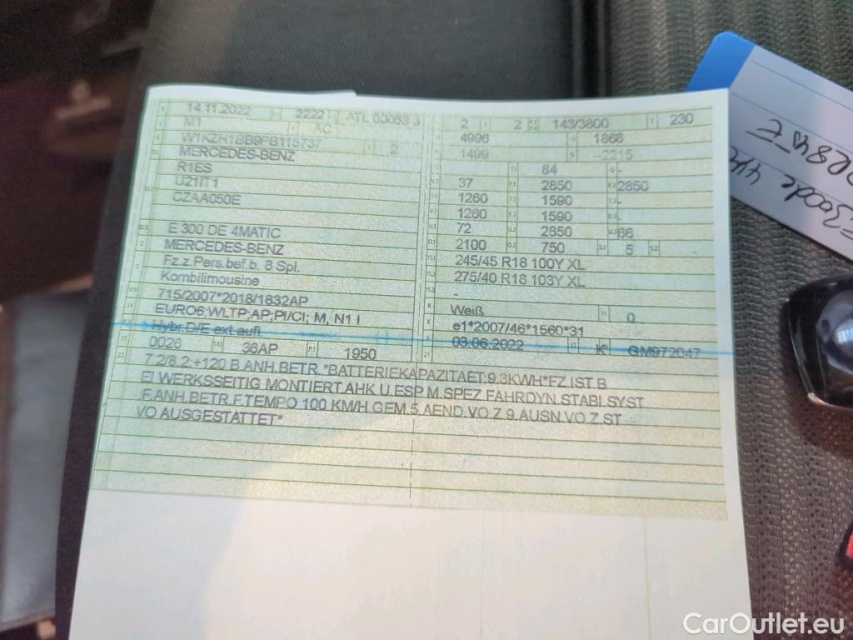 14.11.2022 2222 ATL 00083 3
M1 AC
W1KZH1BB9PB115737 2
MERCEDES-BENZ
R1ES
U21IT1
CZAA050E
E 300 DE 4MATIC
MERCEDES-BENZ
Fz.z.Pers.bef.b. 8 Spl.
Kombilimousine
715/2007*2018/1832AP
EURO6;WLTP;AP;PI/CI; M, N1 I
Hybr.D/E ext.aufl
0026 36AP 1950
2 2 143/3800 230
4996 1868
1499 -2215
84
37 2850 2850
1260 1590 -
1260 1590 -
72 2850 66
2100 750 5 -
245/45 R18 100Y XL
275/40 R18 103Y XL
-
Weiß 0
e1*2007/46*1560*31
03.06.2022 K GM972047
7.2/8.2:+120 B.ANH.BETR.*BATTERIEKAPAZITAET:9,3KWH*FZ.IST B
EI WERKSSEITIG MONTIERT.AHK U.ESP M.SPEZ.FAHRDYN.STABI.SYST
F.ANH.BETR.F.TEMPO 100 KM/H GEM.5.AEND.VO.Z.9.AUSN.VO.Z.ST
VO AUSGESTATTET*
CarOutlet.eu